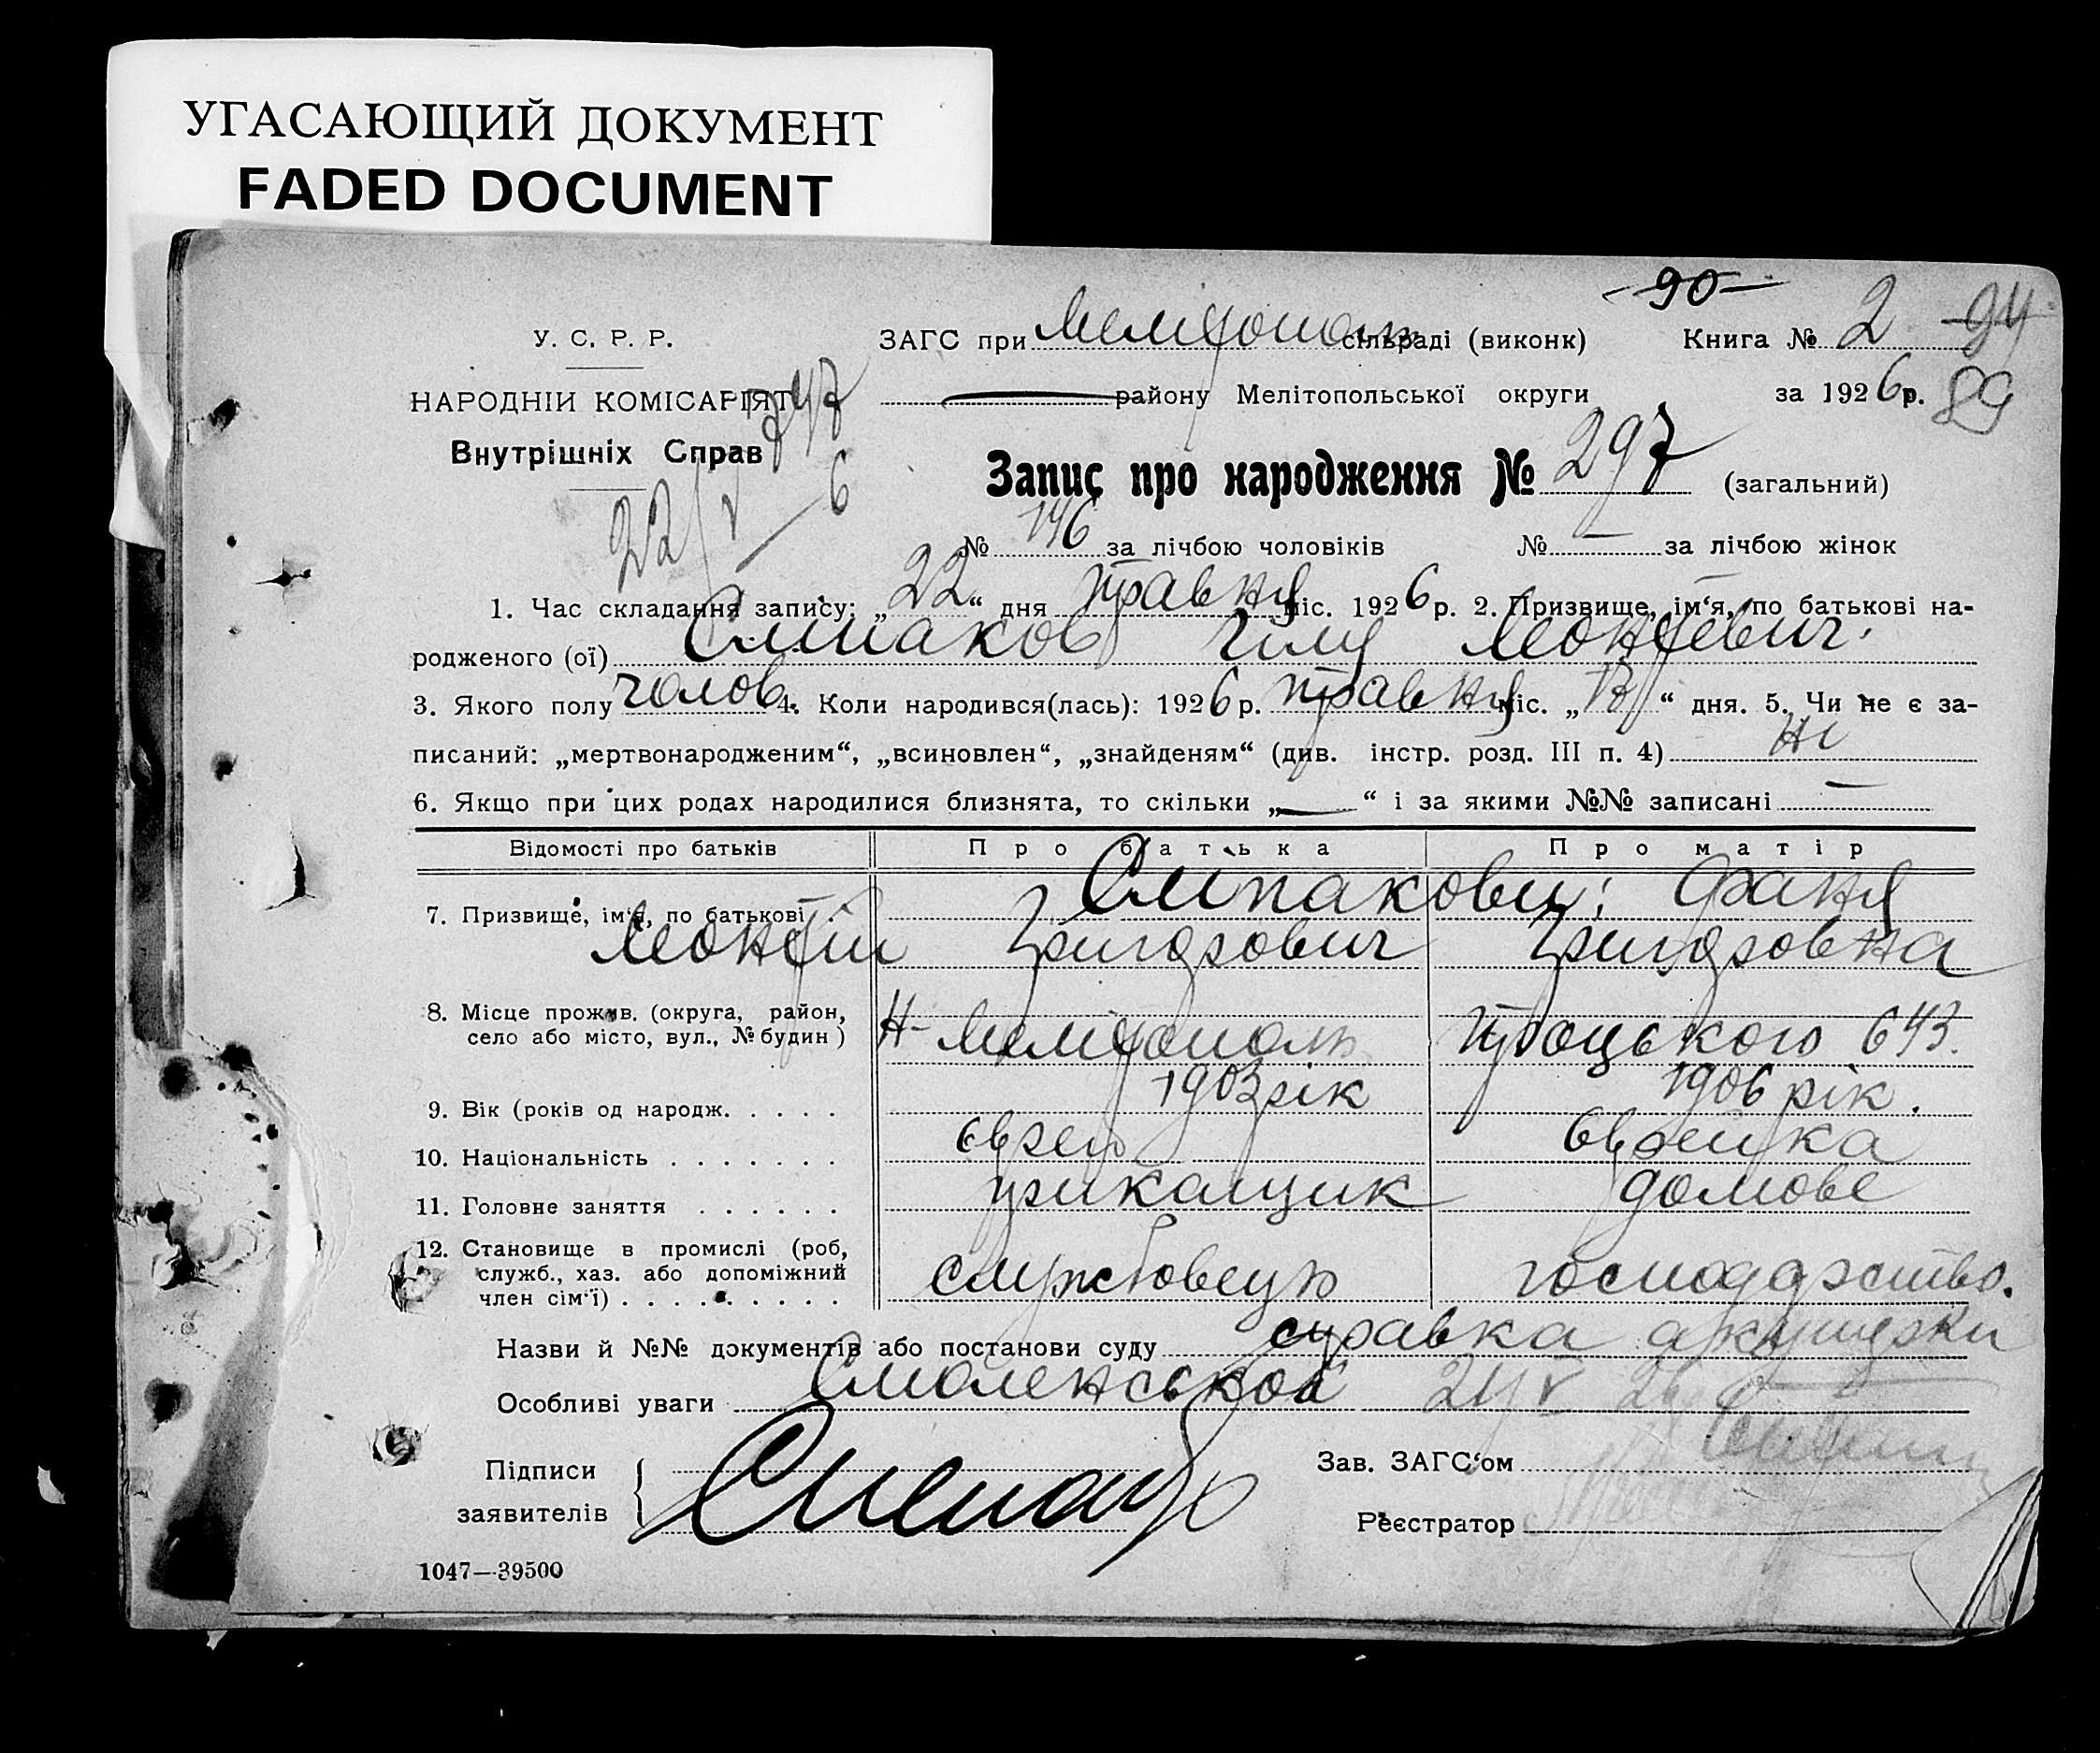 УГАСАЮЩИЙ ДОКУМЕНТ
FADED DOCUMENT
-90-
У. С. Р. Р.
ЗАГС при Мелітополь сільраді (виконк) Книга № 2 94
НАРОДНІЙ КОМІСАРІЯТ 747
району Мелітопольської округи за 1926 р. 89
Внутрішніх Справ
22/V 6
Запис про народження № 297 (загальний)
№ 146 за лічбою чоловіків № — за лічбою жінок
1. Час складання запису: „22“ дня травня міс. 1926 р. 2. Призвище, ім‘я, по батькові на-
родженого (ої) Леонтьевич
3. Якого полу чолов. 4. Коли народився(лась): 1926 р. травня міс. „13“ дня. 5. Чи не є за-
писаний: „мертвонародженим“, „всиновлен“, „знайденям“ (див. інстр. розд. III п. 4) Ні
6. Якщо при цих родах народилися близнята, то скільки „—“ і за якими №№ записані —
Відомості про батьків Про батька Про матір
7. Призвище, ім‘я, по батькові Фаня
Леонтій Григорович Григоровна
8. Місце прожив. (округа, район,
село або місто, вул., № будин) Н-Мелітополь Троцького 643.
9. Вік (років од народж. 1903 рік 1906 рік.
10. Національність Єврей Єврейка
11. Головне заняття прикащик домове
12. Становище в промислі (роб,
служб., хаз. або допоміжний
член сім‘ї) службовець господарство.
Назви й №№ документів або постанови суду справка акушерки
Особливі уваги Смоленської 21/V 26
Підписи
заявителів
Зав. ЗАГС‘ом
Реєстратор
1047—39500